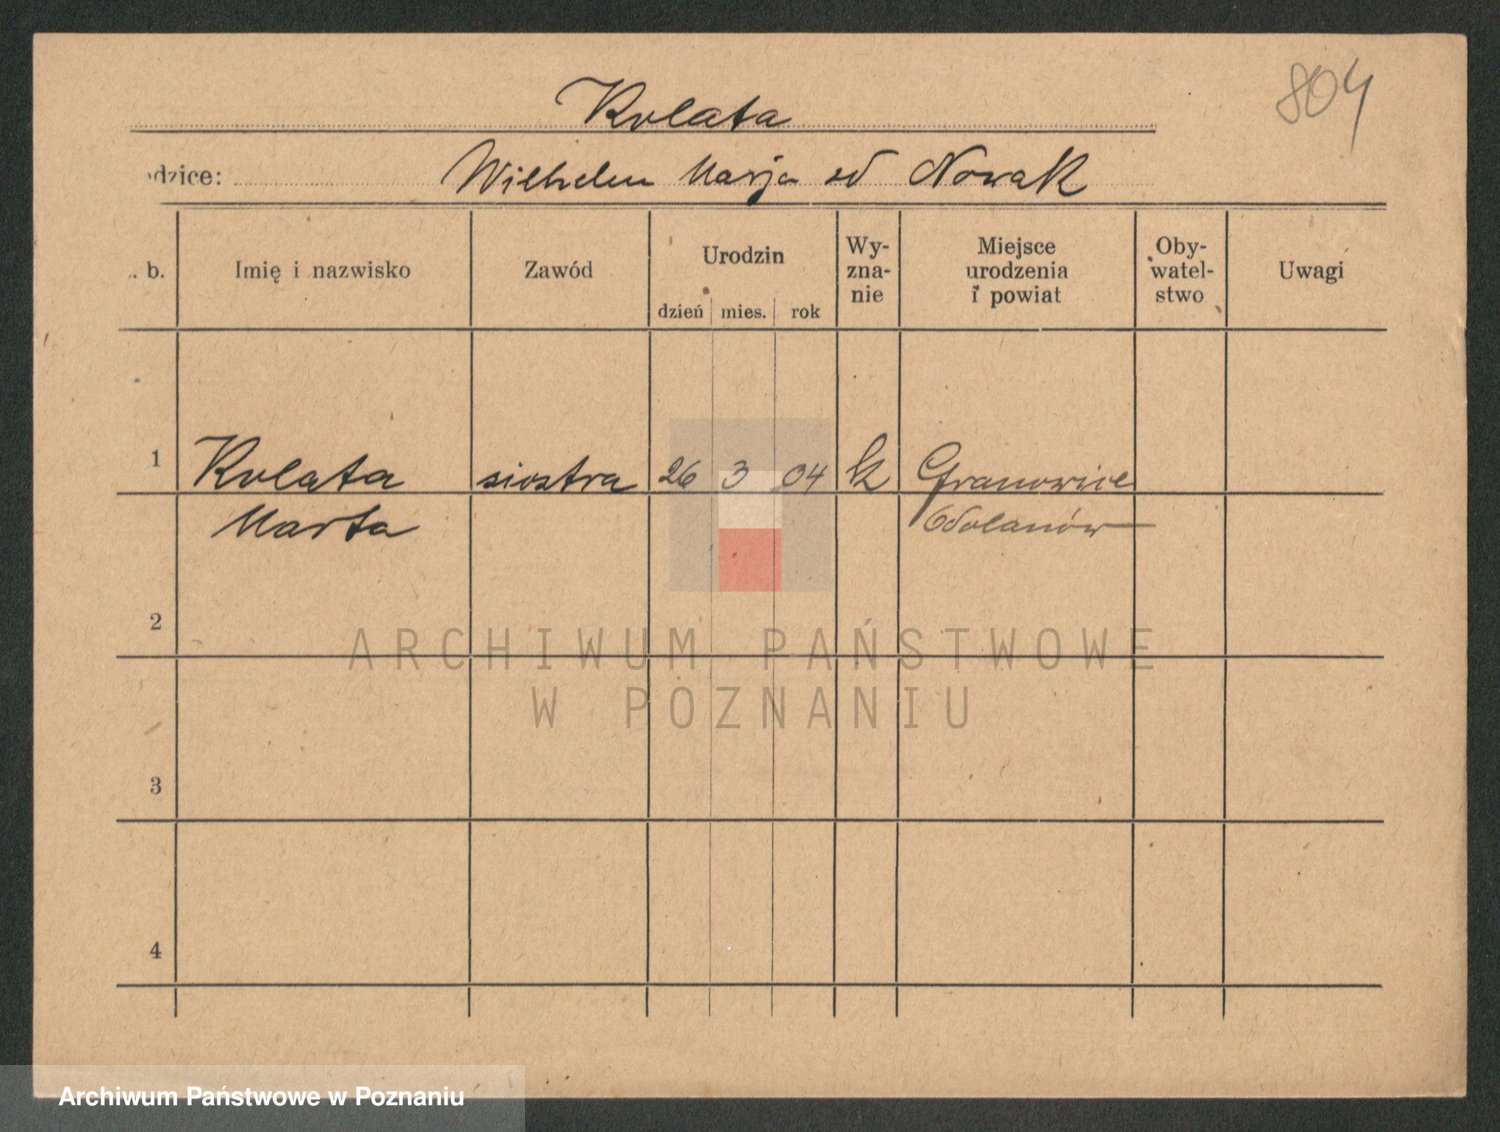 804
Kolata
odzice: Wilhelm Marja od Nowak
. b. Imię i nazwisko Zawód Urodzin dzień mies. rok Wy-zna-nie Miejsce urodzenia i powiat Oby-watel-stwo Uwagi
1 Kolata siostra 26 3 04 k Granowice
Marta Odolanów
2
ARCHIWUM PAŃSTWOWE
W POZNANIU
3
4
Archiwum Państwowe w Poznaniu